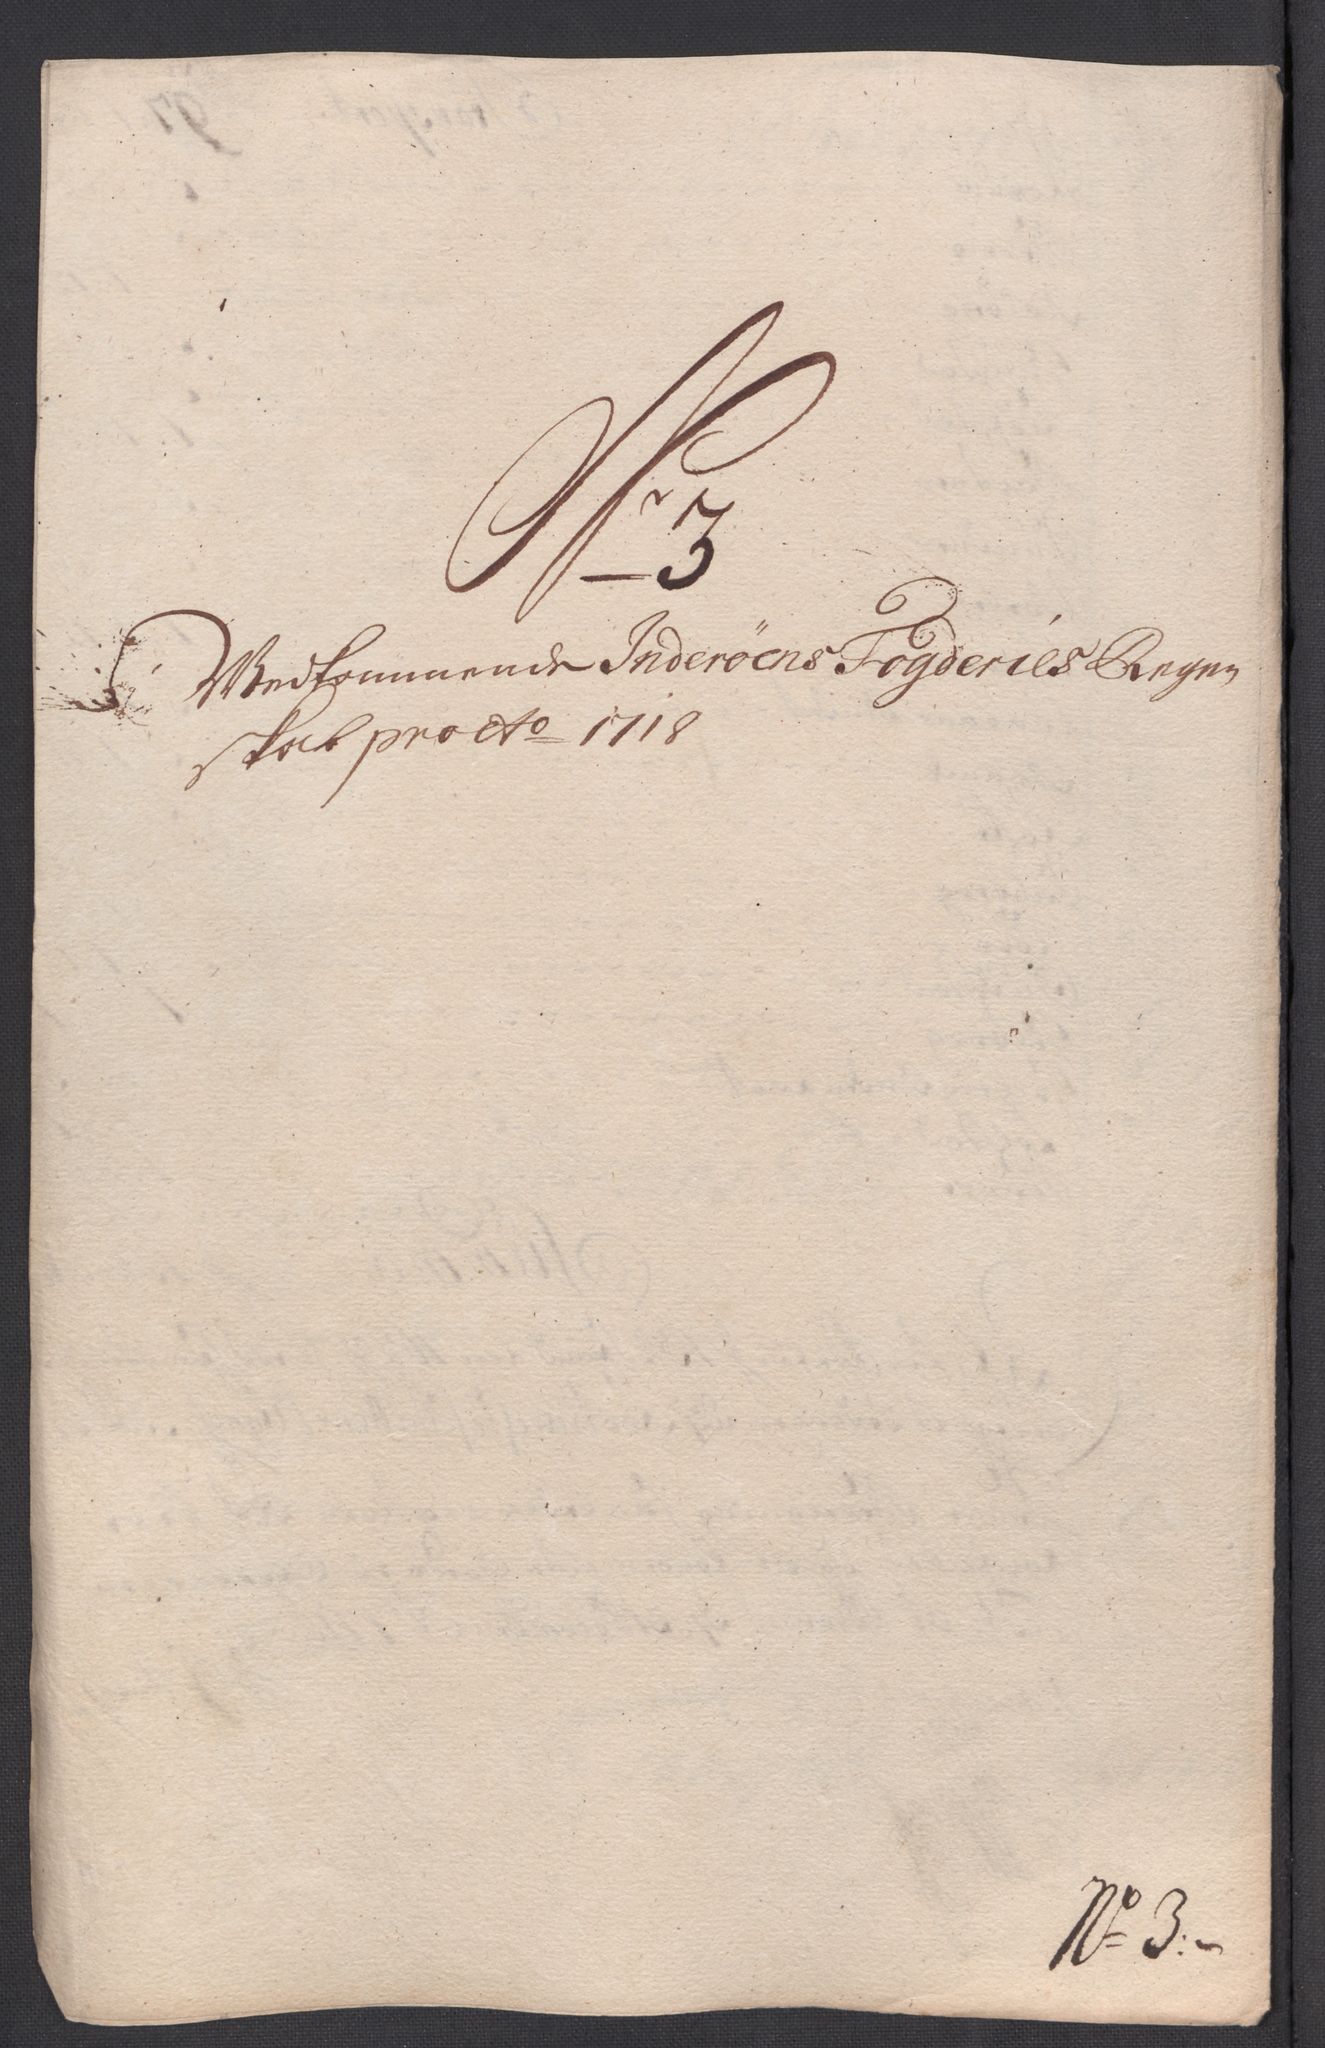 Nr 3
Vedkommende Inderöens Fogderies Regen
skab pro Ao 1718
No 3: